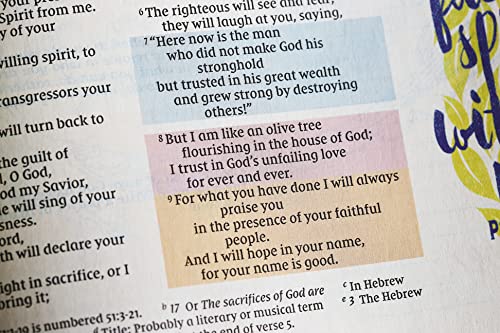 Spirit from me.
y of your
willing spirit, to
ansgressors your
will turn back to
the guilt of
, O God,
od my Savior,
e will sing of your
sness.
ord,
th will declare your
ight in sacrifice, or I
bring it;
is numbered 51:3-21.
6 The righteous will see and fear;
they will laugh at you, saying,
7 “Here now is the man
who did not make God his
stronghold
but trusted in his great wealth
and grew strong by destroying
others!”
8 But I am like an olive tree
flourishing in the house of God;
I trust in God’s unfailing love
for ever and ever.
9 For what you have done I will always
praise you
in the presence of your faithful
people.
And I will hope in your name,
for your name is good.
b 17 Or The sacrifices of God are
d Title: Probably a literary or musical term
the end of verse 5.
c In Hebrew
e 3 The Hebrew